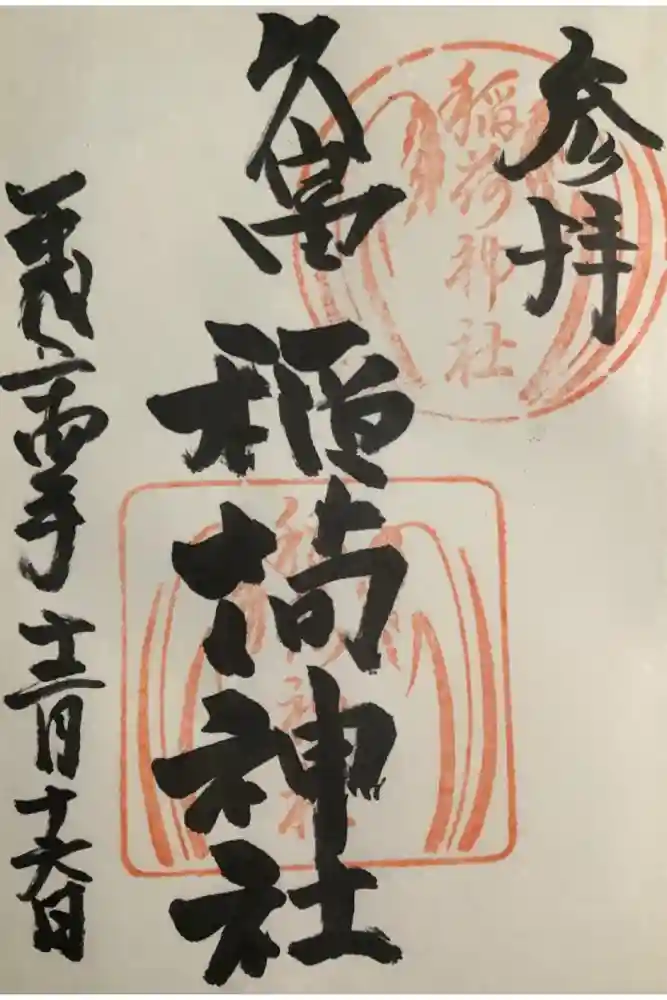 参拝
稲荷神社
久富稲荷神社
稲荷神社
年十二月十六日